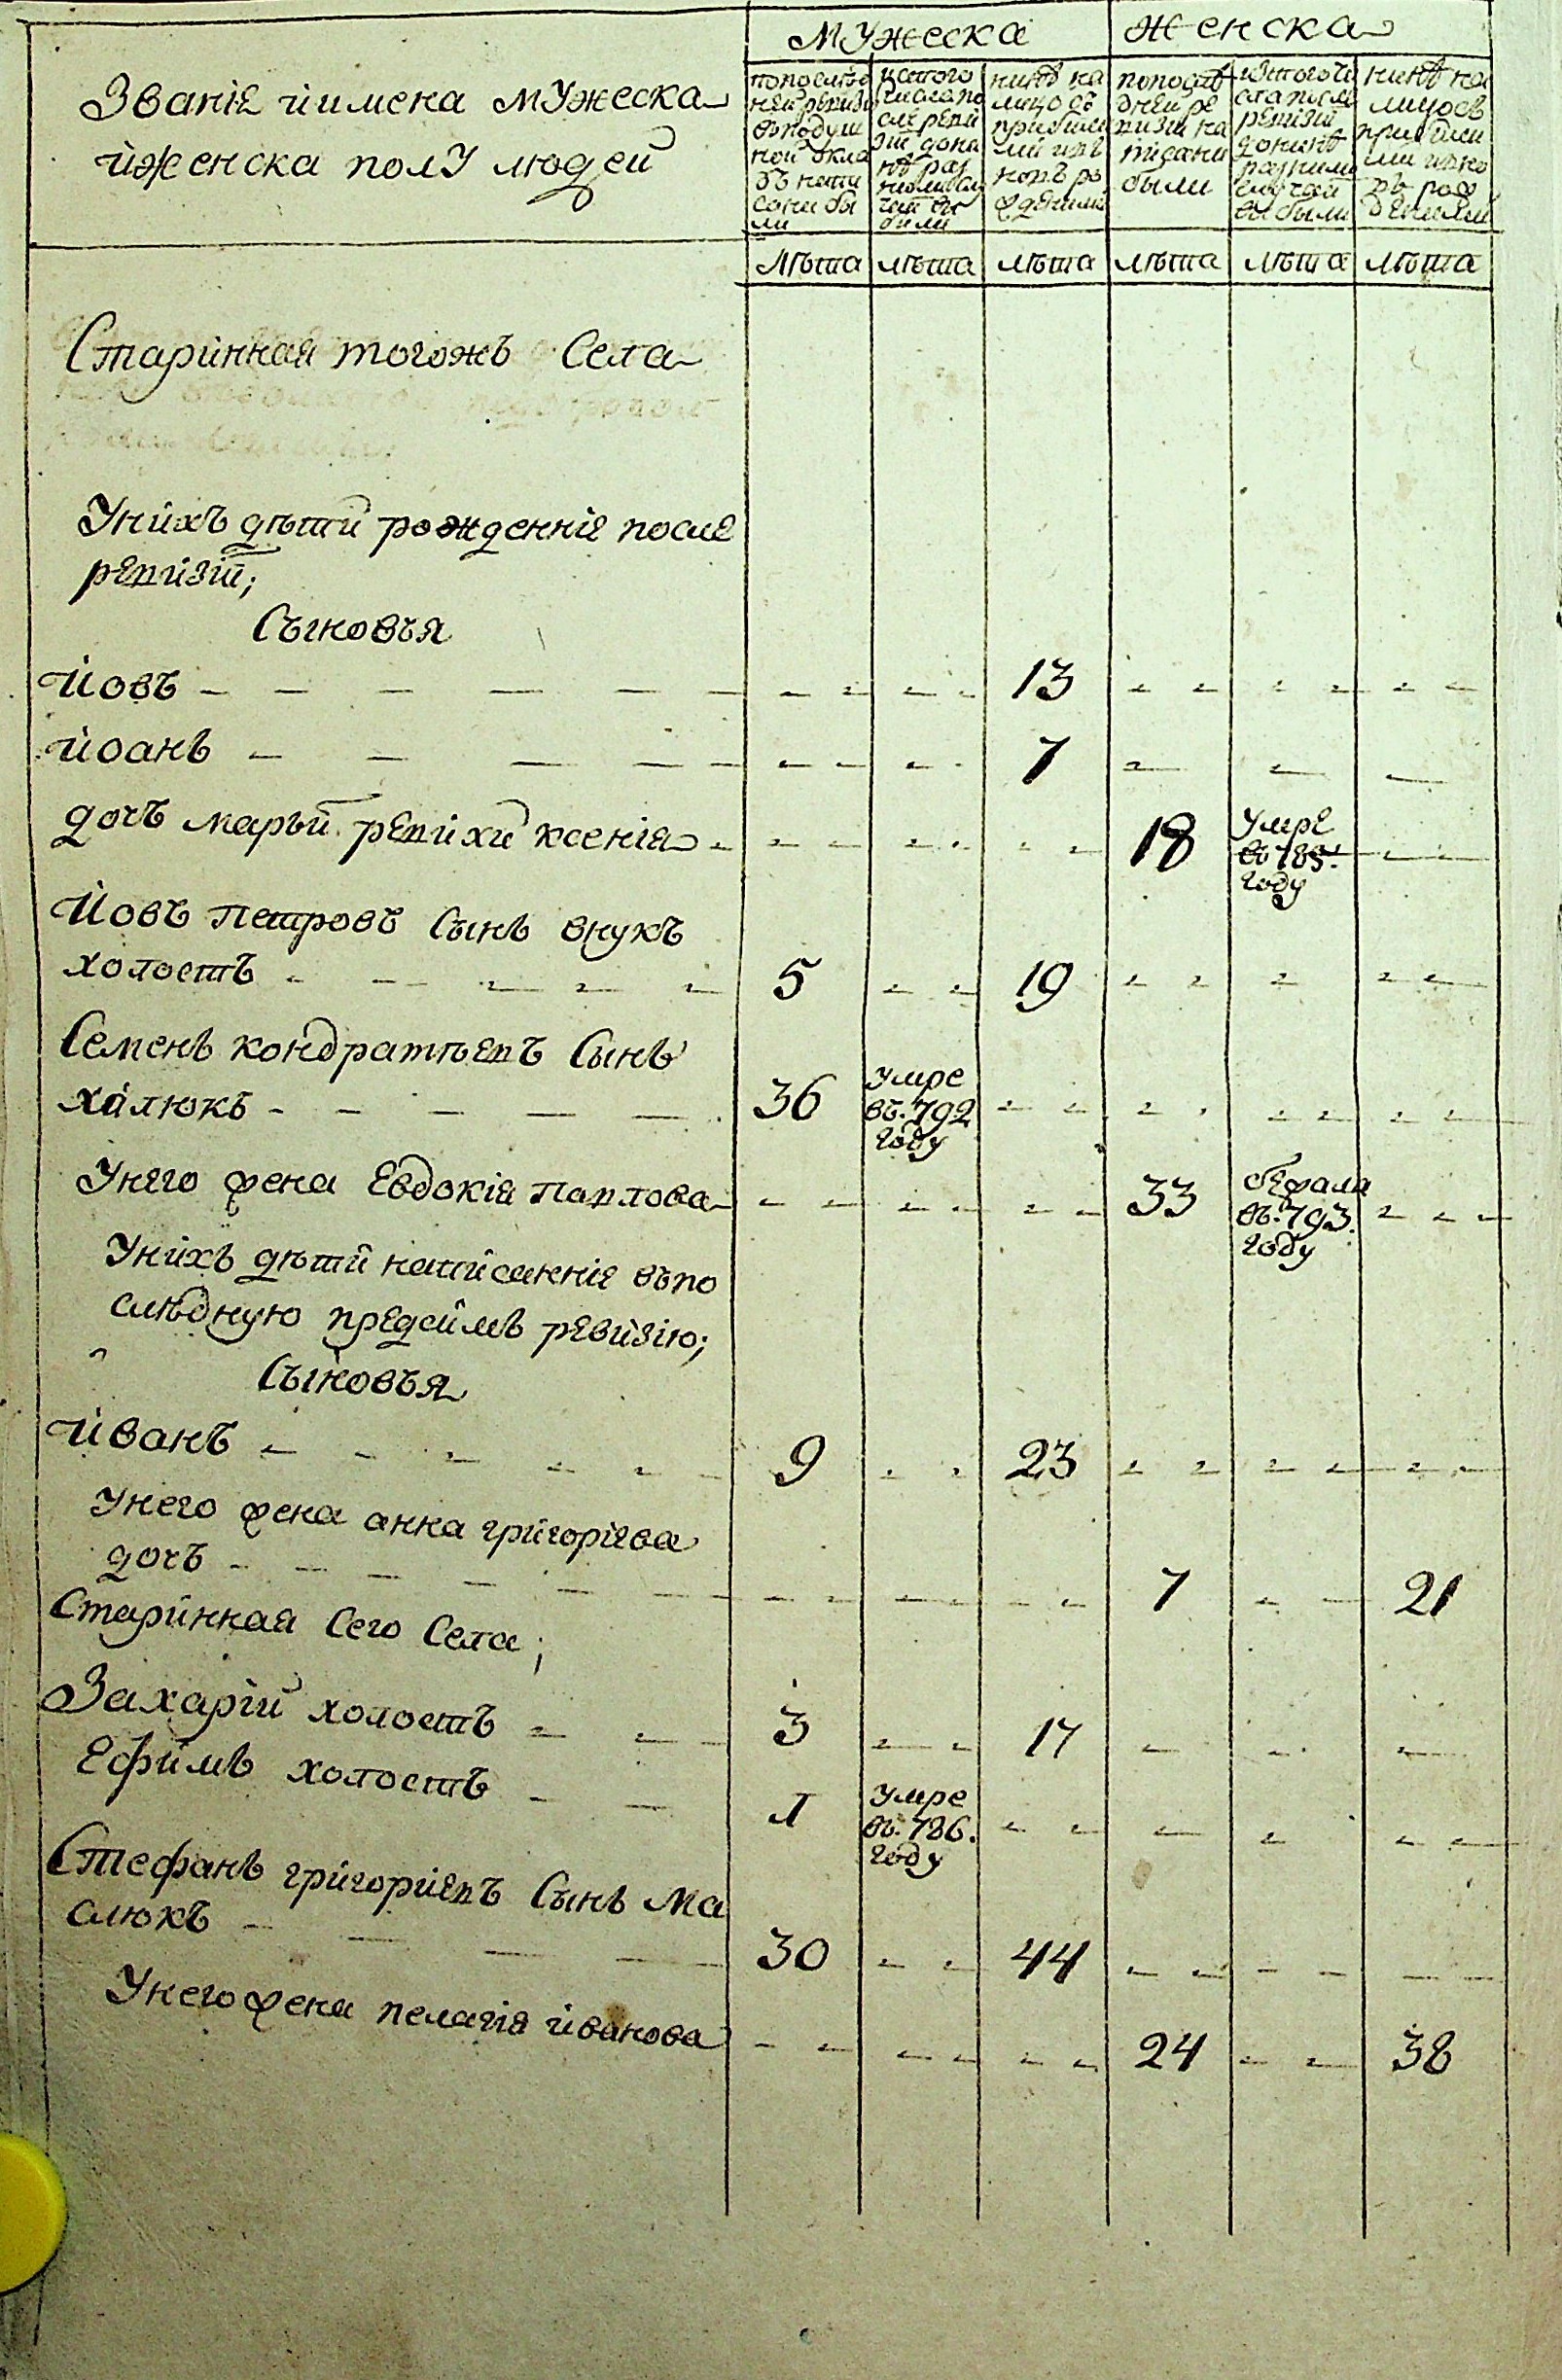 Званіе и имена мужеска
и женска полу людей
мужеска
женска
по последней ревизіи в подушной окладъ написани были
ис того числа после ревизіи до ныне разними случаи выбили
нине на лицо съ прибилими и вновь рожденими
по последней ревизіи написани были
ис того числа после ревизіи до нине разними случаи выбыли
нине на лицо съ прибилими и вновь рожденими
лѣта лѣта лѣта лѣта лѣта лѣта
Старинная тогожъ Села
У нихъ дѣти рожденніе после
ревизіи;
Сыновъя
Иовъ 13
Иоанъ 7
дочъ марьи ревихи ксенія 18 умре въ 785. году
Иовъ Петровъ Сынъ внукъ
холостъ 5 19
Семенъ кондратъевъ Сынъ
халюкъ 36 умре въ. 792 году
У него жена Евдокія Павлова 33 бежала въ. 793. году
У нихъ дѣти написанніе въ по
слѣдную предсимъ ревизію;
Сыновъя
Иванъ 9 23
У него жена анна григоріева
дочъ 7 21
Старинная Сего Села;
Захарій холостъ 3 17
Ефимъ холостъ 1 умре въ. 786. году
Стефанъ григориевъ Сынъ Ма
слюкъ 30 44
У него жена пелагія иванова 24 38